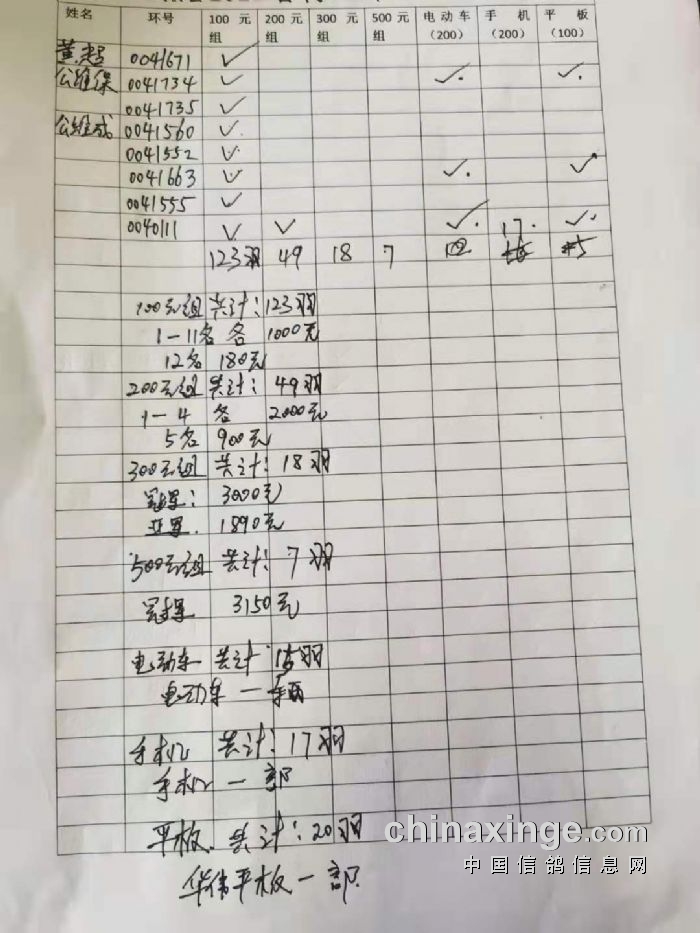 姓名 环号 100元组 200元组 300元组 500元组 电动车(200) 手机(200) 平板(100)
0041671 ✓
公维保 0041734 ✓ ✓ ✓
0041735 ✓
公维成 0041560 ✓
0041552 ✓
0041663 ✓ ✓ ✓
0041555 ✓
0040111 ✓ ✓ ✓ 17. ✓
123羽 49 18 7
100元组 共计:123羽
1-11名 各 1000元
12名 180元
200元组 共计: 49羽
1-4 各 2000元
5名 900元
300元组 共计:18羽
冠军: 3000元
亚军. 1890元
500元组 共计:7羽
冠军 3150元
电动车 共计 羽
电动车 一辆
手机 共计:17羽
手机 一部
平板. 共计:20羽
华伟平板一部
chinaxinge.com
中国信鸽信息网